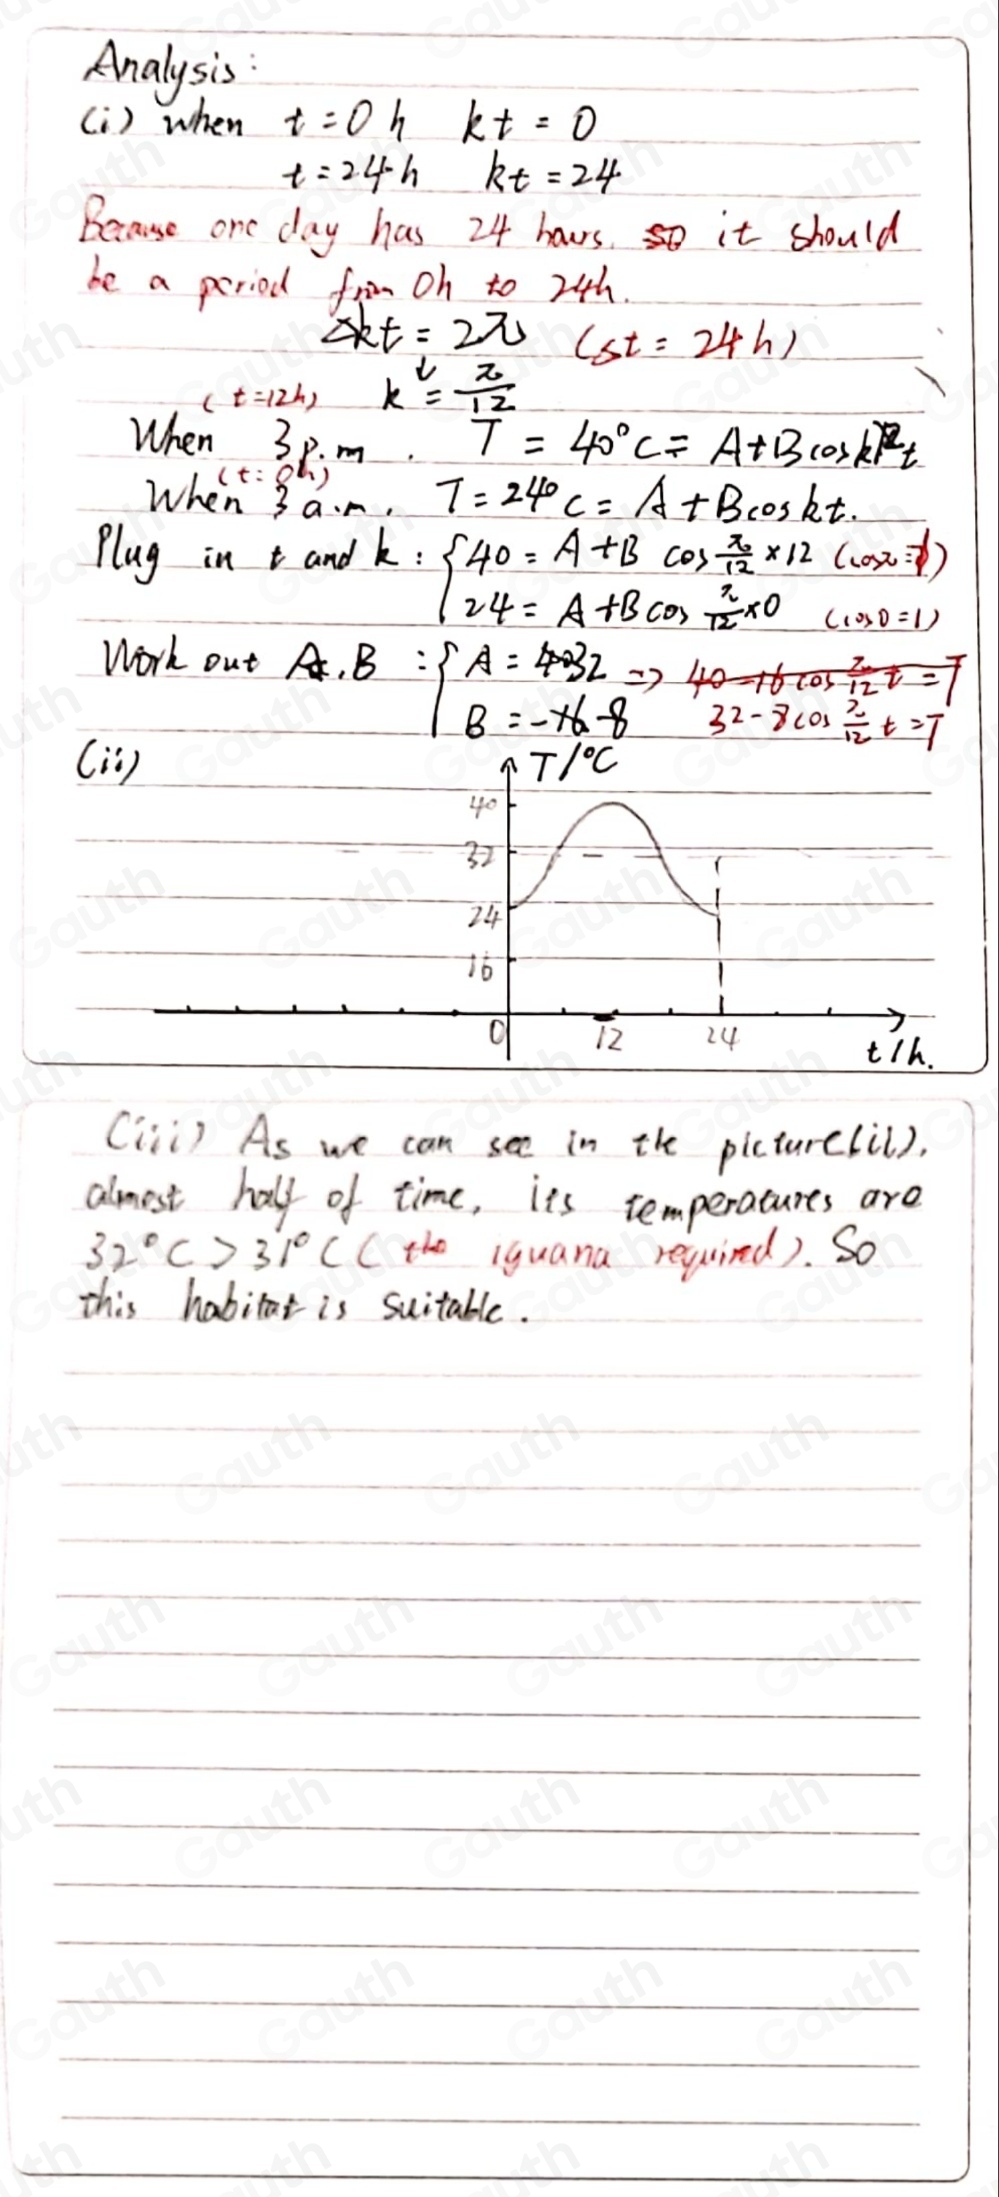 Analysis:
(i) when t = 0 h kt = 0
t = 24 h kt = 24
Because one day has 24 hours. so it should
be a period from 0h to 24h.
Δkt = 2π (Δt = 24 h)
↓
(t=12h) k = π/12
When 3 p.m. T = 40°C = A + B cos kt
(t: 0h)
When 3 a.m. T = 24°C = A + B cos kt.
Plug in t and k : { 40 = A + B cos π/12 × 12
24 = A + B cos π/12 × 0 (cos 0 = 1)
Work out A, B : { A = 32 => 40 - 16 cos π/12 t = T
B = -16 -8 32 - 8 cos π/12 t = T
(ii) T/°C
40
32
24
16
0 12 24
t/h.
(iii) As we can see in the picture(ii),
almost half of time, its temperatures are
32°C > 31°C ( the iguana required). So
this habitat is suitable.